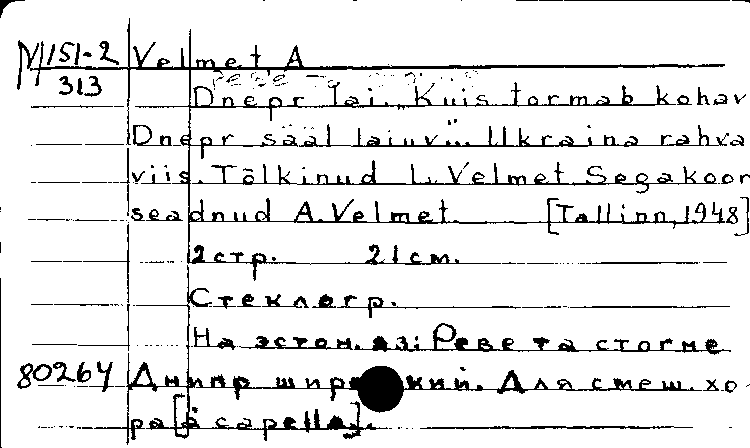 М151-2 Velmet, A
313
Dnepr lai. "Kuis tormab kohav
Dnepr sääl laiuv"... Ukraina rahva
viis. Tõlkinud L. Velmet. Segakoor
seadnud A. Velmet. [Tallinn, 1948]
2 стр. 21 см.
Стеклогр.
На эстон. яз: Реве та стогне
80264 Днипр широкий. Для смеш. хо-
ра [a capella].